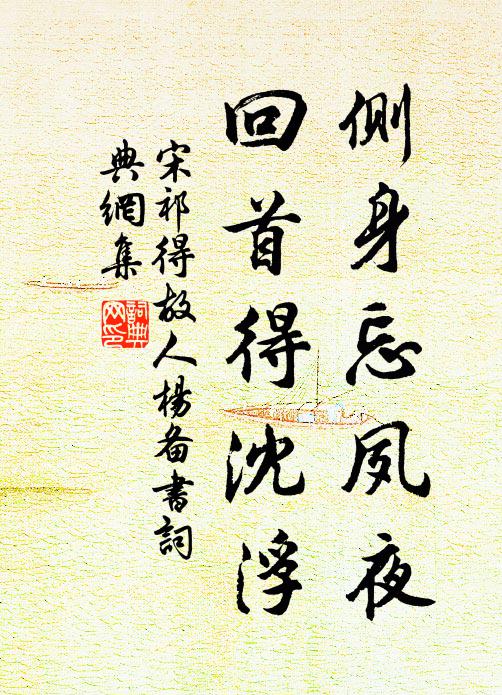 側身忘夙夜
回首得沈浮
宋祁得故人楊备書詞
典網集
詞典
网印